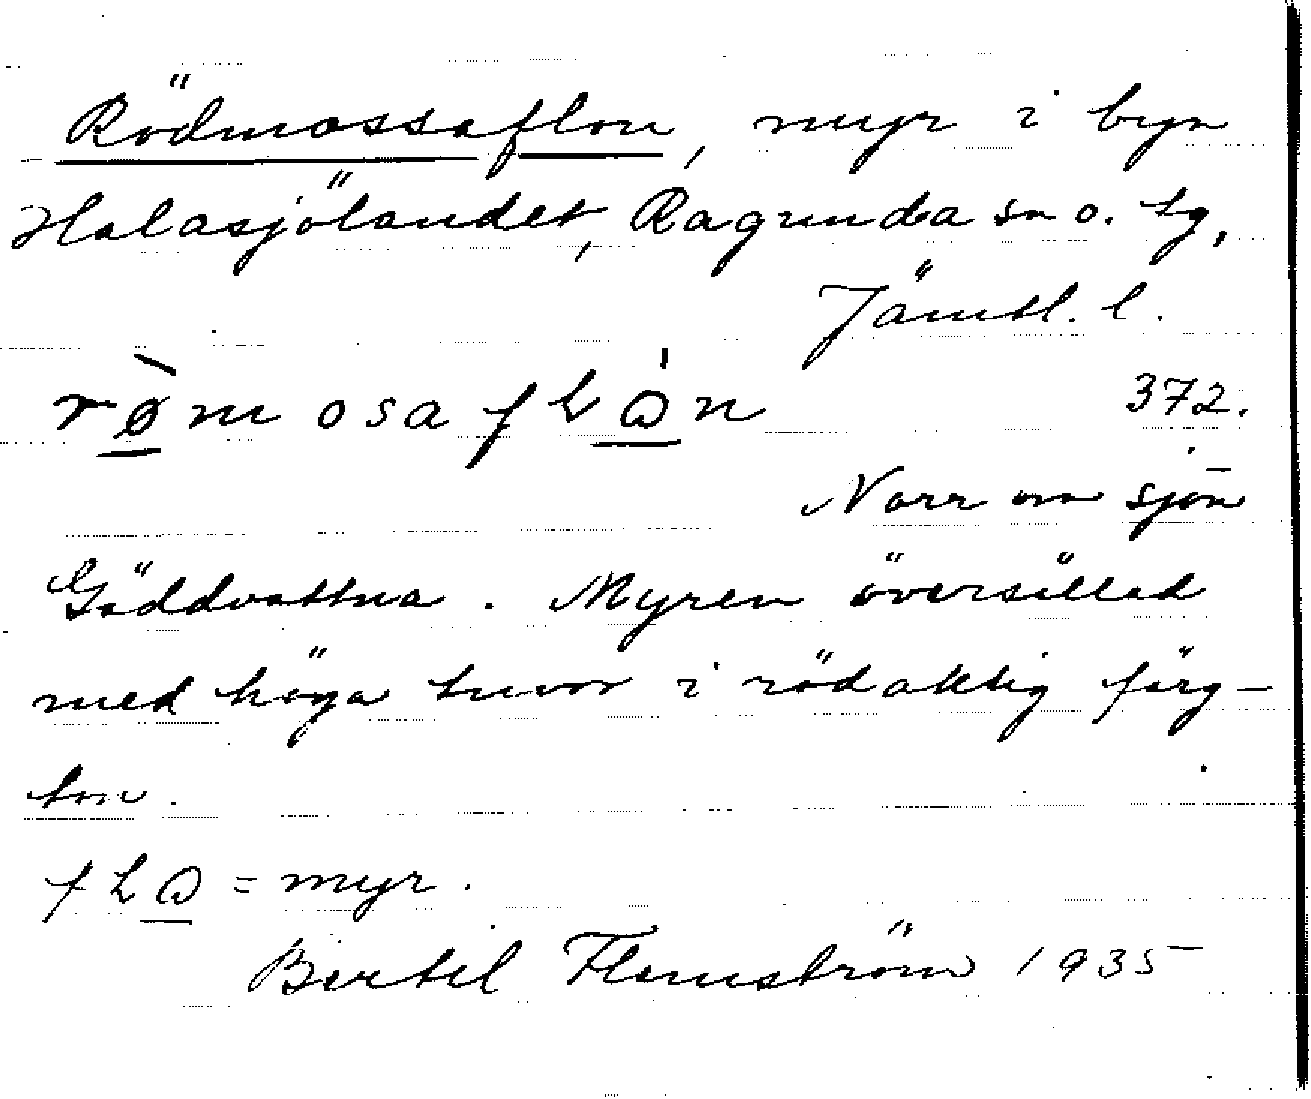 Rödmossaflon, myr i byn
Halasjölandet, Ragunda sn o. tg,
Jämtl. l.
rø̀mosaflɷ́n 372.
Norr om sjön
Gäddvattna. Myren översållad
med höga tuvor i rödaktig färg-
ton.
flɷ = myr.
Bertil Flemström 1935